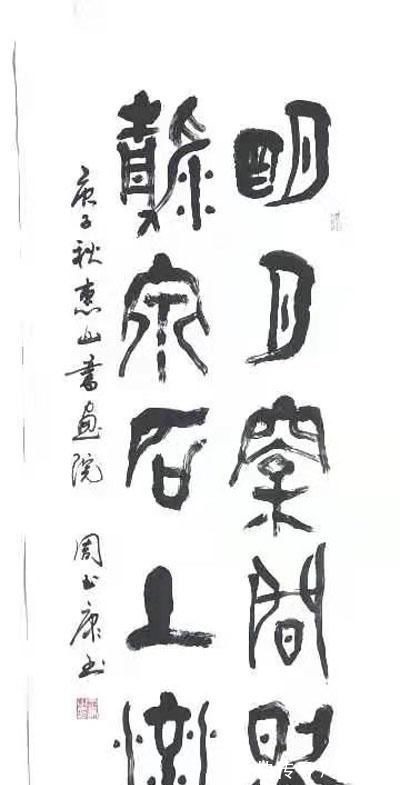 明月松間照
清泉石上流
庚子秋惠山書畫院 周康书